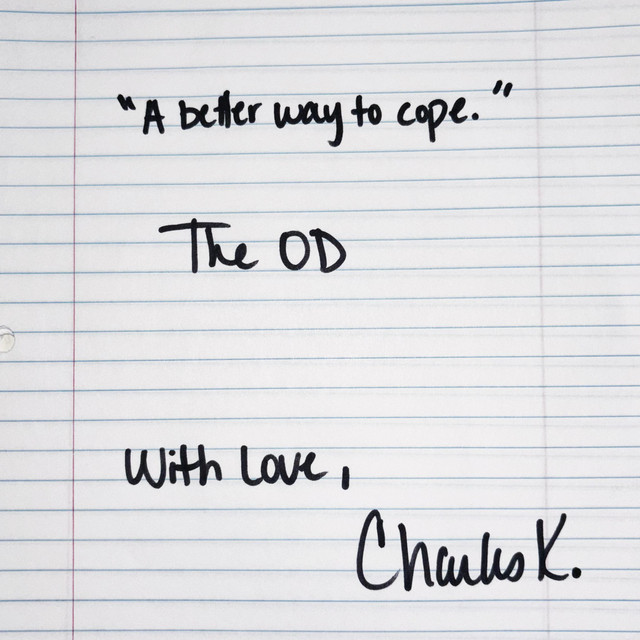 "A better way to cope."
The OD
With Love,
Charles K.